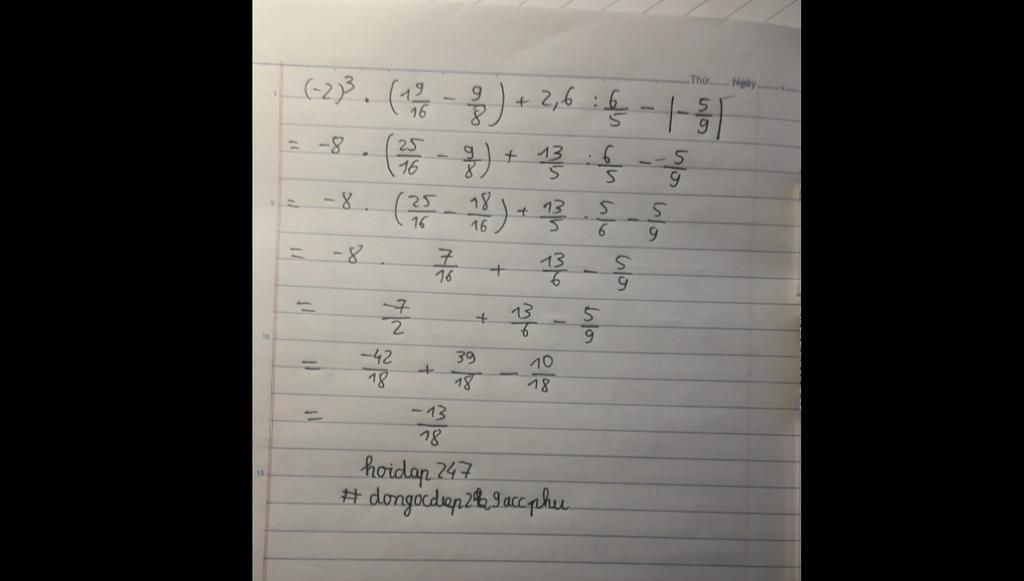 Thứ....... Ngày.......
(-2)³ . (1 9/16 - 9/8) + 2,6 : 6/5 - |-5/9|
= -8 . (25/16 - 9/8) + 13/5 : 6/5 - -5/9
= -8 . (25/16 - 18/16) + 13/5 . 5/6 - 5/9
= -8 . 7/16 + 13/6 - 5/9
= -7/2 + 13/6 - 5/9
= -42/18 + 39/18 - 10/18
= -13/18
hoidap 247